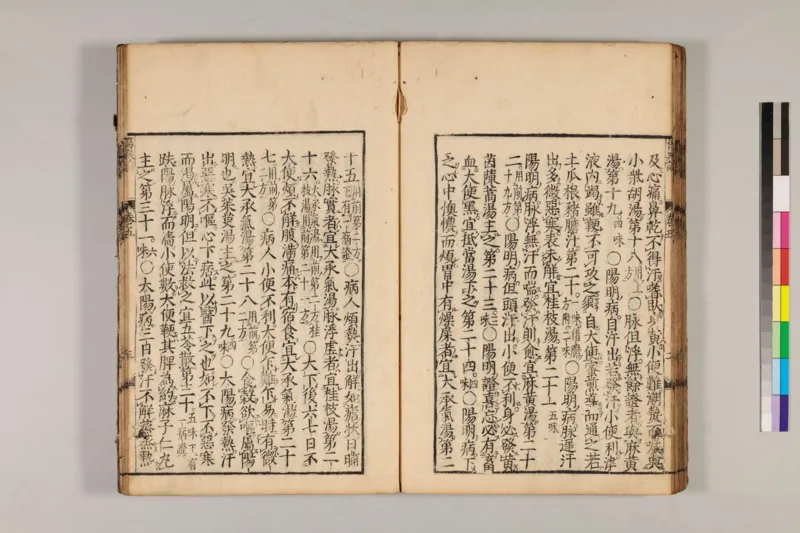 及心痛鼻乾不得汗嗜臥身黃小便難潮熱而噦與
小柴胡湯第十八用上方○脉但浮無餘證者與麻黃
湯第十九四味○陽明病自汗出若發汗小便利津
液内竭雖鞕不可攻之須自大便蜜煎導而通之若
土瓜根豬膽汁第二十一味猪膽方用二味○陽明病脉遲汗
出多微惡寒表未解宜桂枝湯第二十一五味
陽明病脉浮無汗而喘發汗則愈宜麻黃湯第二十
二用前第十九方○陽明病但頭汗出小便不利身必發黃
茵蔯蒿湯主之第二十三三味○陽明證喜忘必有畜
血大便黑宜抵當湯下之第二十四四味○陽明病下
之心中懊憹而煩胃中有燥屎者宜大承氣湯第二
十五用前第二方下有一病證○病人煩熱汗出解如瘧狀日晡
發熱脉實者宜大承氣湯脉浮虛者宜桂枝湯第二
十六大承氣湯用前第二方桂枝湯用前第二十一方○大下後六七日不
大便煩不解腹滿痛本有宿食宜大承氣湯第二十
七用前第二方○病人小便不利大便乍難乍易時有微
熱宜大承氣湯第二十八用前第二方○食穀欲嘔屬陽
明也吳茱萸湯主之第二十九四味○太陽病發熱汗
出惡寒不嘔心下痞此以醫下之也如不下不惡寒
而渴屬陽明但以法救之宜五苓散第三十五味下有二病證
趺陽脉浮而濇小便數大便鞕其脾爲約麻子仁丸
主之第三十一六味○太陽病三日發汗不解蒸蒸熱